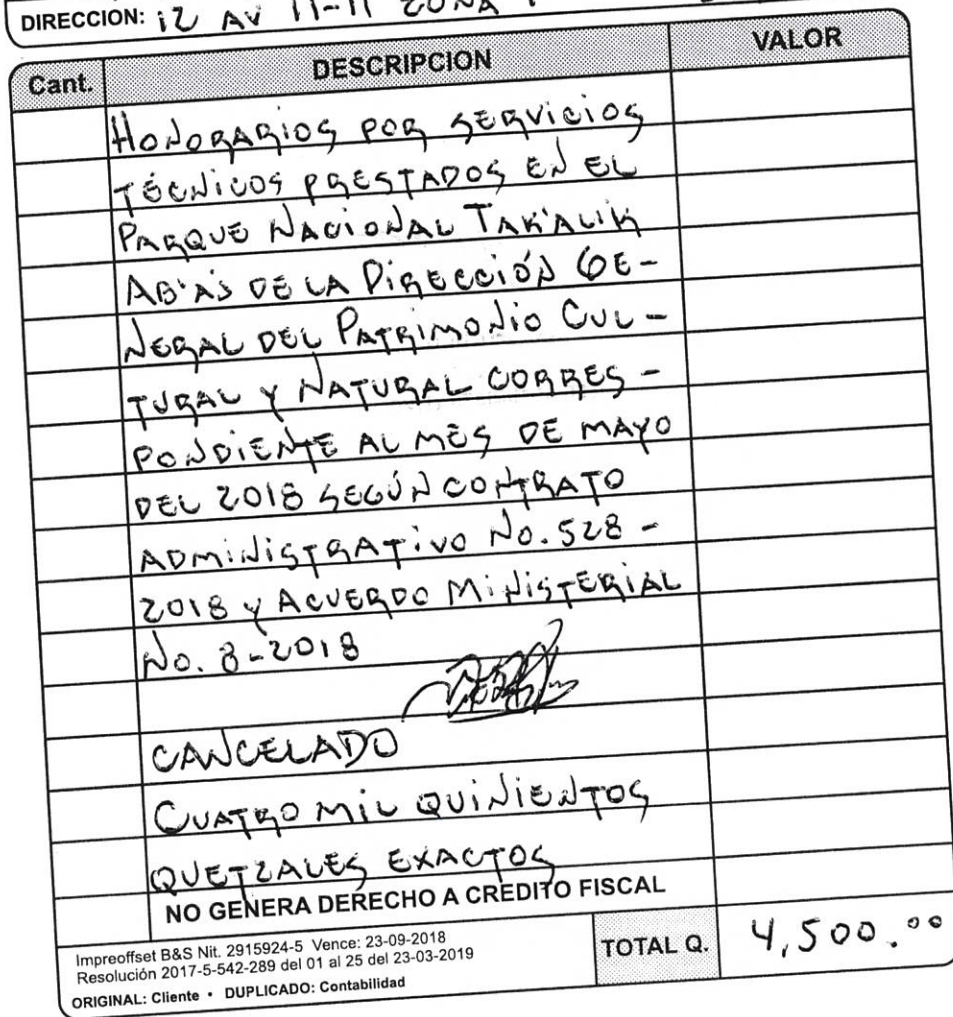 DIRECCION: 12 AV 11-11 ZONA 1
Cant. DESCRIPCION VALOR
HONORARIOS POR SERVICIOS
TÉCNICOS PRESTADOS EN EL
PARQUE NACIONAL TAK'ALIK
AB'AJ DE LA DIRECCIÓN GE-
NERAL DEL PATRIMONIO CUL-
TURAL Y NATURAL CORRES-
PONDIENTE AL MES DE MAYO
DEL 2018 SEGÚN CONTRATO
ADMINISTRATIVO No. 528-
2018 Y ACUERDO MINISTERIAL
No. 8-2018
CANCELADO
CUATRO MIL QUINIENTOS
QUETZALES EXACTOS
NO GENERA DERECHO A CREDITO FISCAL
Impreoffset B&S Nit. 2915924-5 Vence: 23-09-2018
Resolución 2017-5-542-289 del 01 al 25 del 23-03-2019
ORIGINAL: Cliente • DUPLICADO: Contabilidad
TOTAL Q. 4,500.00